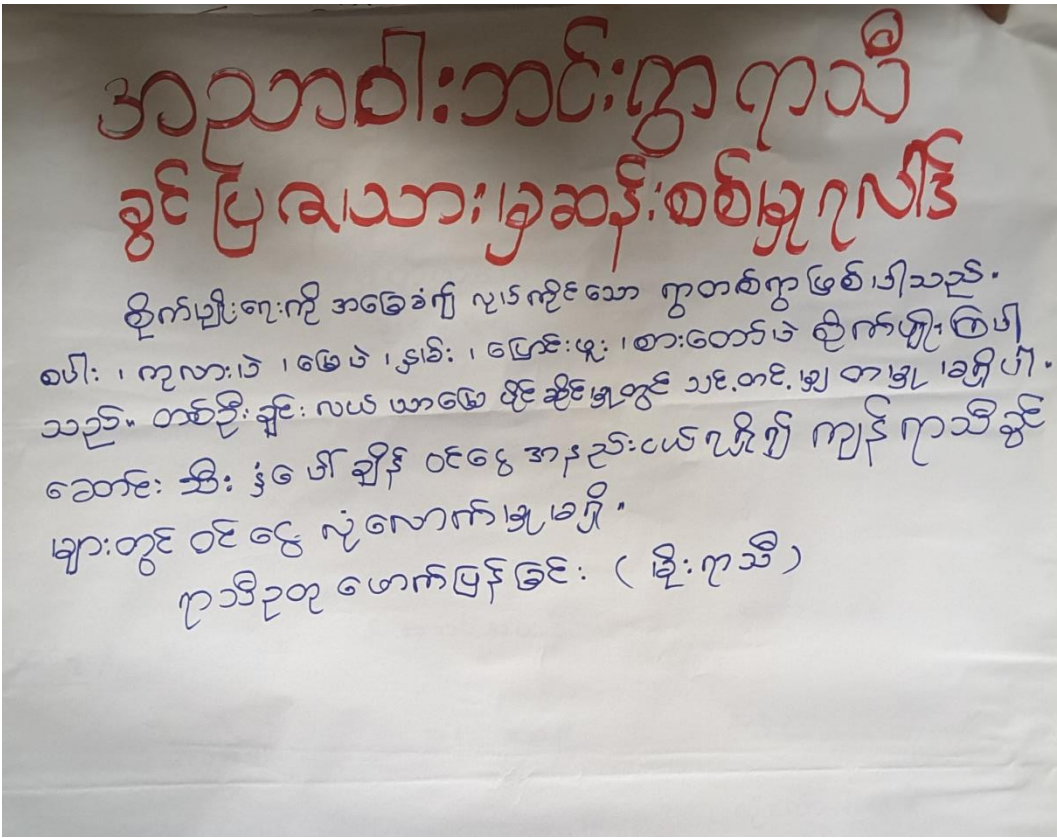 အညာဝါးဘင်းရွာ ရာသီ
ခွင် ပြဿနာများ ဆန်းစစ်မှုရလဒ်
စိုက်ပျိုးရေးကို အခြေခံ၍ လုပ်ကိုင်သော ရွာတစ်ရွာ ဖြစ်ပါသည်။
စပါး ၊ ကုလားပဲ ၊ မြေပဲ ၊ နှမ်း ၊ ပြောင်းဖူး ၊ စားတော်ပဲ စိုက်ပျိုးကြပါ
သည်။ တစ်ဦးချင်း လယ် ယာမြေ ပိုင်ဆိုင်မှုတွင် သင့်တင့်မျှတမှု မရှိပါ။
ဆောင်းသီးနှံပေါ်ချိန် ဝင်ငွေ အနည်းငယ်ရှိ၍ ကျန်ရာသီခွင်
များတွင် ဝင်ငွေ လုံလောက်မှုမရှိ။
ရာသီဥတု ဖောက်ပြန်ခြင်း ( မိုးရာသီ )